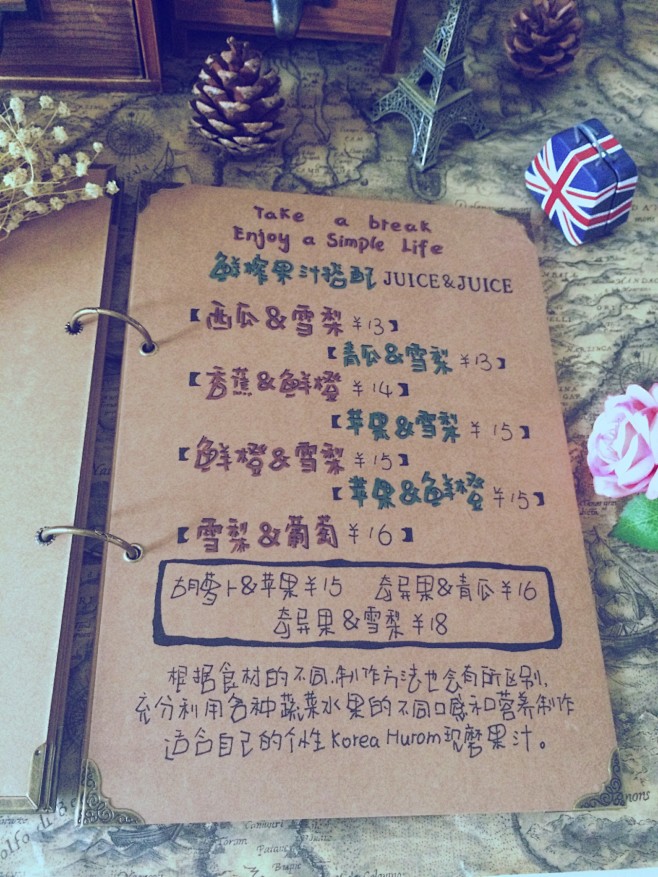 Take a break
Enjoy a Simple Life
鲜榨果汁搭配 JUICE&JUICE
【西瓜&雪梨 ¥13】
【青瓜&雪梨 ¥13】
【香蕉&鲜橙 ¥14】
【苹果&雪梨 ¥15】
【鲜橙&雪梨 ¥15】
【苹果&鲜橙 ¥15】
【雪梨&葡萄 ¥16】
胡萝卜&苹果¥15 奇异果&青瓜¥16
奇异果&雪梨¥18
根据食材的不同,制作方法也会有所区别,
充分利用各种蔬菜水果的不同口感和营养制作
适合自己的个性Korea Hurom现磨果汁。